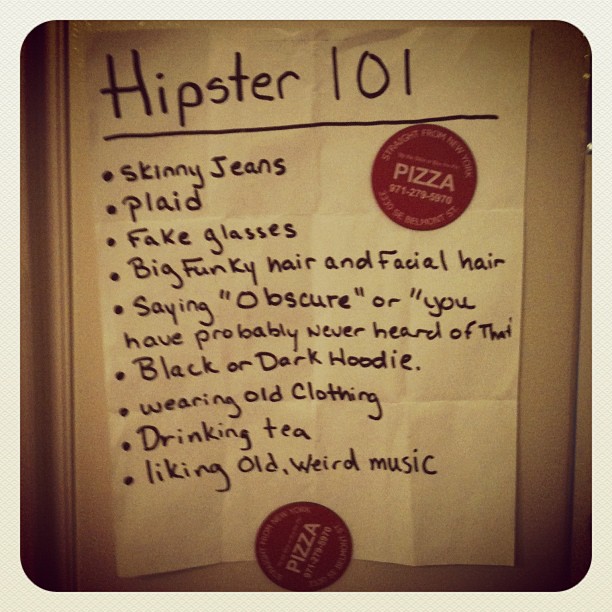 Hipster 101
• Skinny Jeans
• Plaid
• Fake glasses
• Big Funky hair and Facial hair
• Saying "Obscure" or "you
have probably Never heard of That'
• Black or Dark Hoodie.
• wearing old Clothing
• Drinking tea
• liking Old, Weird music
STRAIGHT FROM NEW YORK
PIZZA
971-279-5970
3330 SE BELMONT ST.
STRAIGHT FROM NEW YORK
PIZZA
971-279-5970
3330 SE BELMONT ST